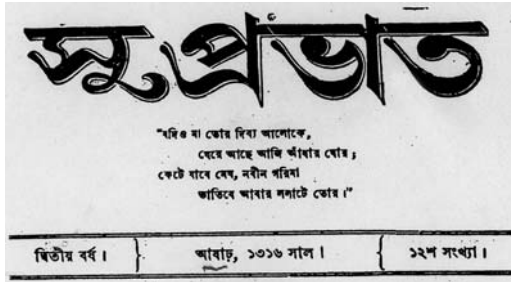 সুপ্রভাত
“যদিও মা তোর দিব্য আলোকে,
ঘেরে আছে আজি আঁধার ঘোর ;
কেটে যাবে মেঘ, নবীন গরিমা
ভাতিবে আবার ললাটে তোর ।”
দ্বিতীয় বর্ষ । আষাঢ়, ১৩১৬ সাল । ১২শ সংখ্যা ।